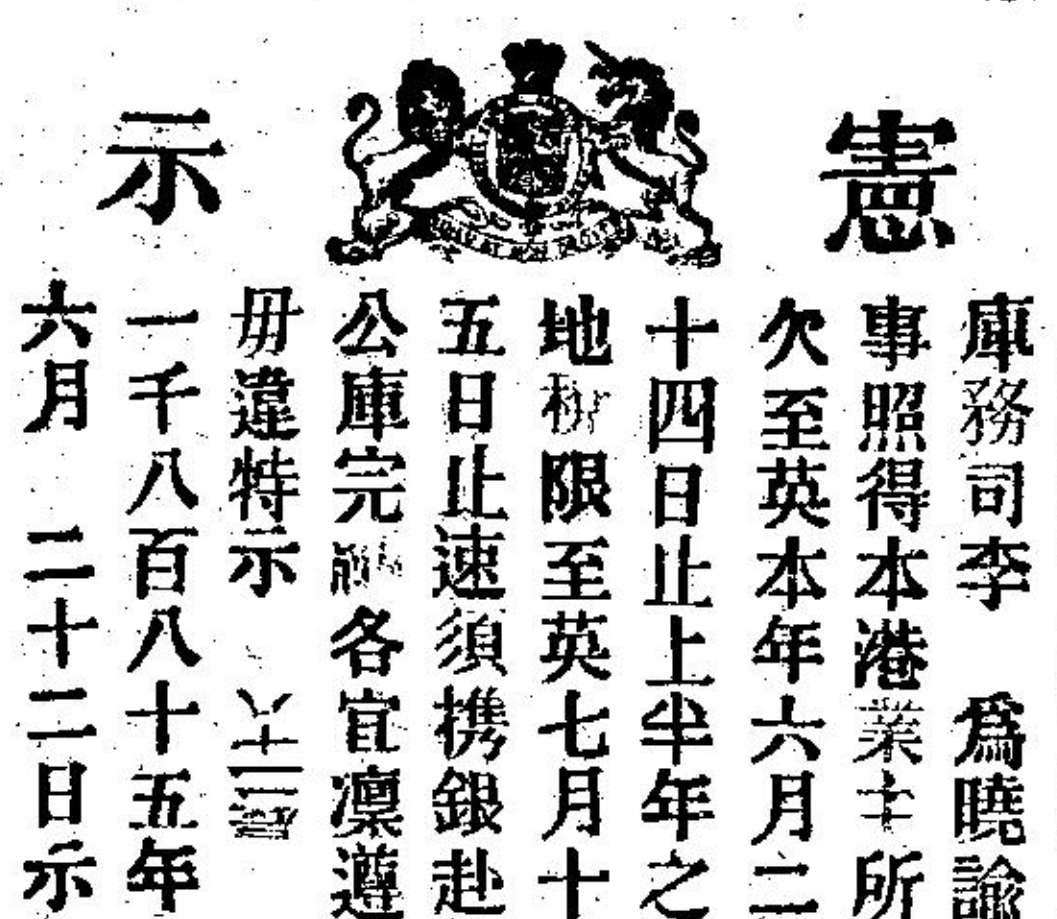 憲示
庫務司李 爲曉諭
事照得本港業主所
欠至英本年六月二
十四日止上半年之
地稅限至英七月十
五日止速須携銀赴
公庫完各宜凜遵
毋違特示
一千八百八十五年
六月 二十二日示